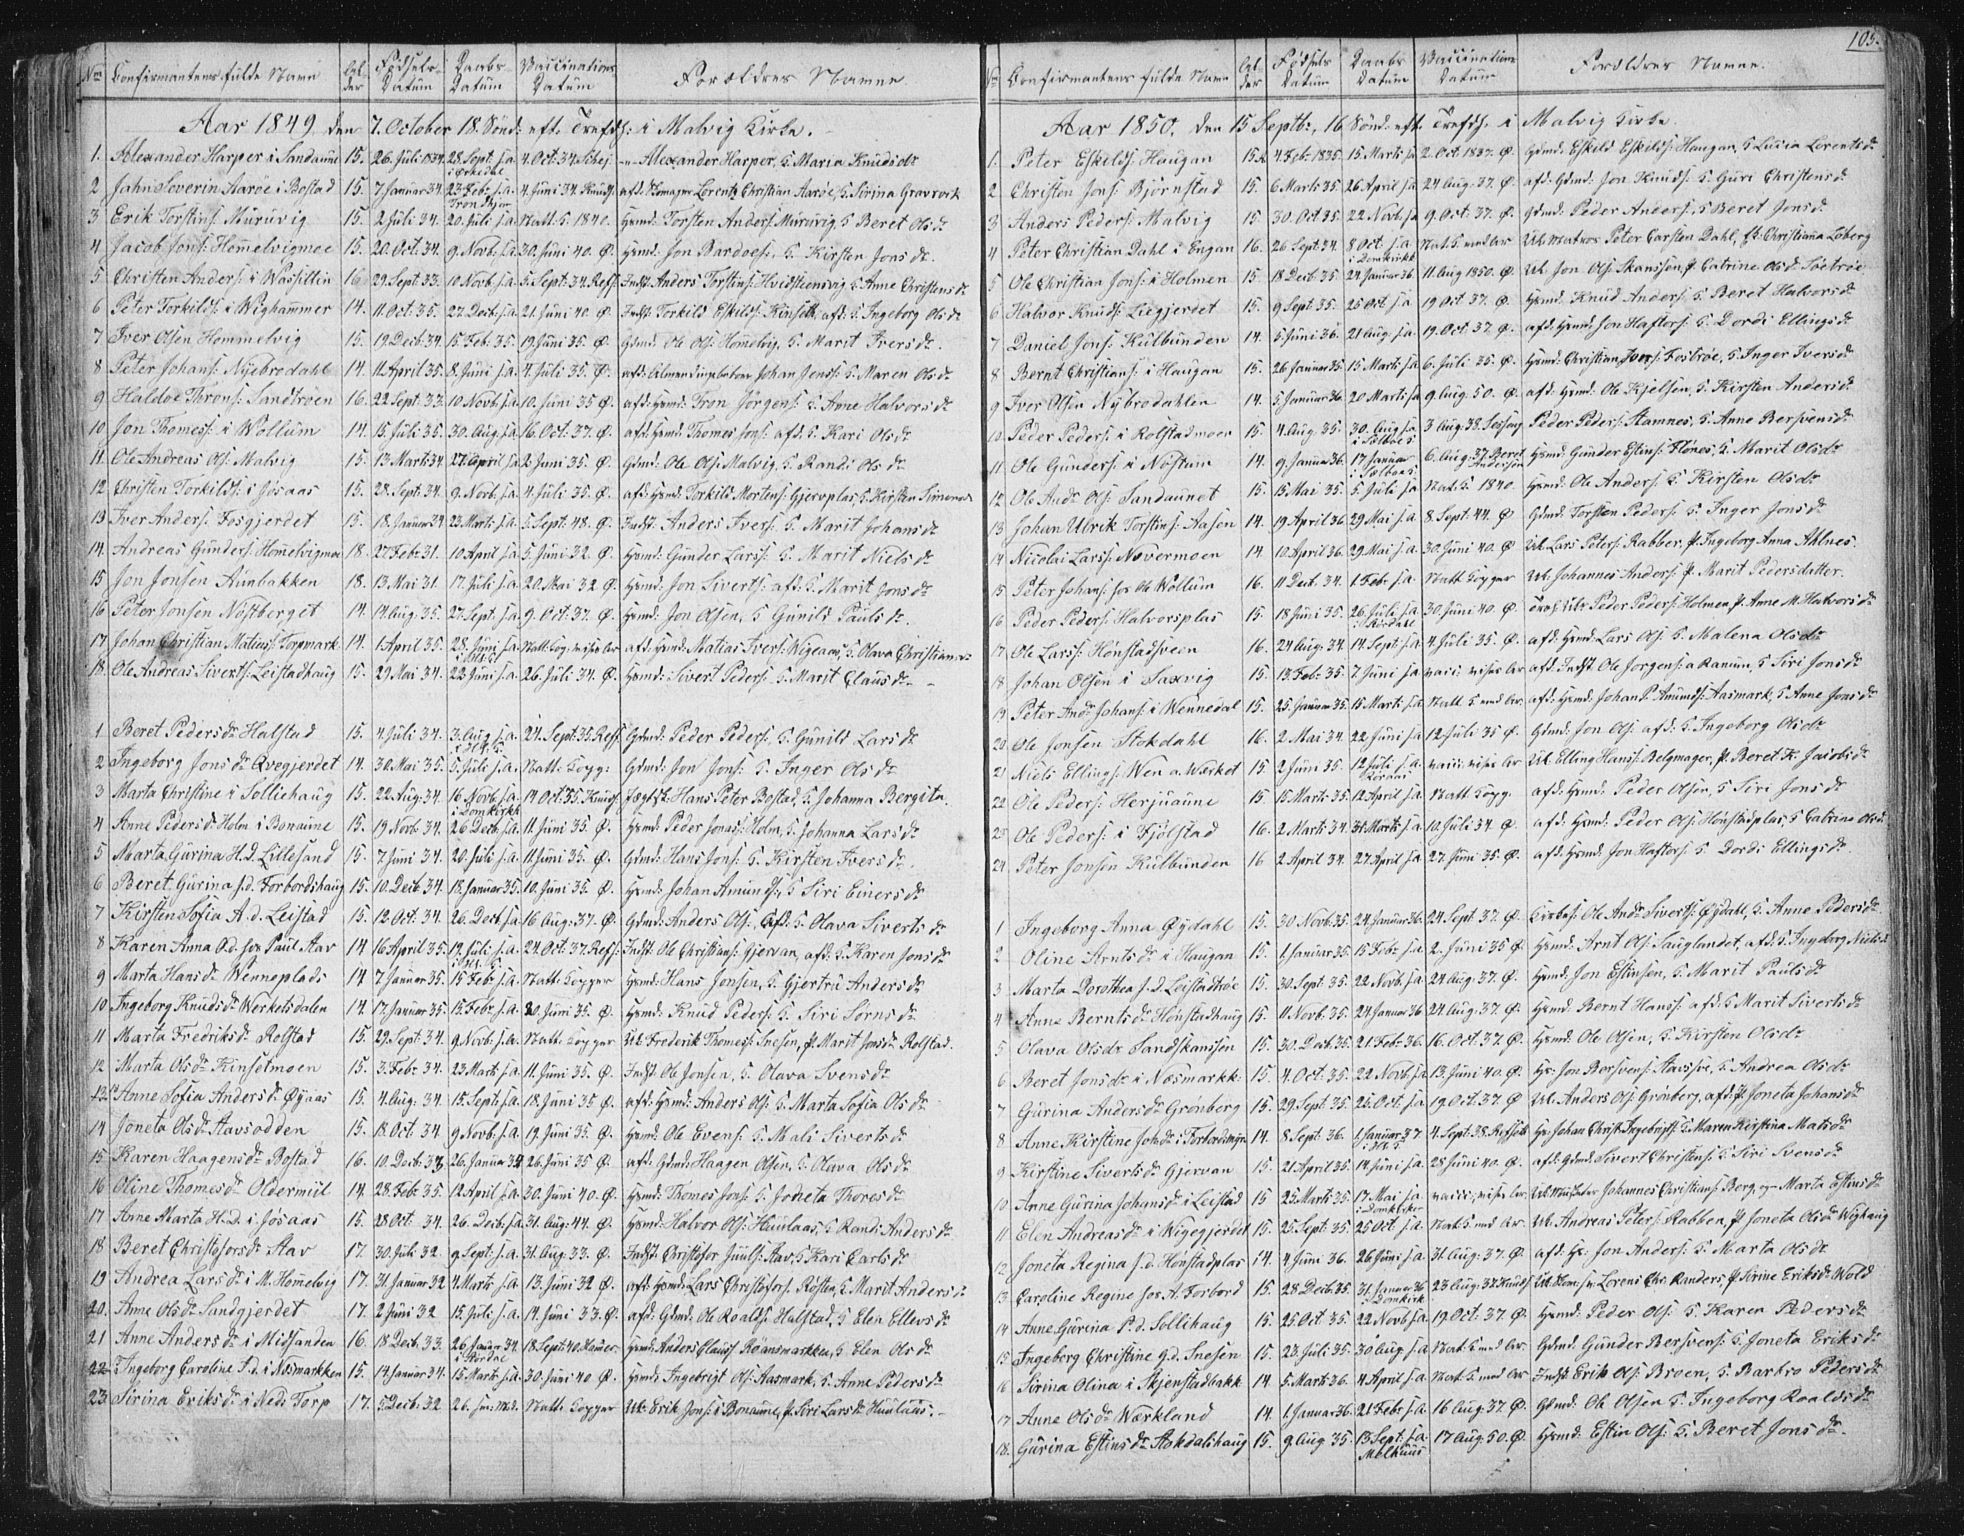 105.
No Confirmantens fulde Navn Alder Fødsels Datum Daabs Datum Vaccinations Datum Forældres Navne
Aar 1849 den 7. October 18. Sønd: eft. Trefdh: i Malvig Kirke.
1. Alexander Harper i Sandaune 15. 26. Juli 1834. 28. Sept. s.a. i Orkedal 4. Oct. 34 Alexander Harper, h. Maria Knudsdr
2 Jahn Severin Aarøe i Bostad 15. 7 Januar 34. 23. Febr. s.a. Trondhjem 4. Juni 34. Lorentz Christian Aarøe, h. Sirina Gravrock
3 Erik Torstins: Muruvig 15. 2 Juli 34. 20. Juli s.a. Natt. K. 1840. Huusmd: Torsten Anders: Muruvig, h. Beret Olsdr
4 Jacob Jons: Hommelvigmoe 15. 20. Oct. 34. 9. Novb. s.a. 30. Juni 40. Ø. Husmd: Jon Bardoes: h. Kirsten Jonsdr.
5 Christen Anders: i Wæsillin 16 29. Sept. 33. 10 Novb. s.a. 5. Sept. 34. Indst. Anders Torstins: Hvidsteensvig h. Anne Christensdr
6 Peter Torkilds: i Wighammer 14. 11. Oct. 35. 27. Decb. s.a. 21. Juni 40. Ø Indst: Torkild Eskilds: Kinseth, afd. h. Ingeborg Olsdr
7 Iver Olsen Hommelvig 15. 19. Decb. 34. 15 Feb. 35. 19 Juni 35. Ø. Gdmd: Ole Ols: Homelvig, h. Marit Iversdr.
8 Peter Johans: Nyebrodahl 14. 11. April 35. 8. Juni s.a. 4. Juli 35. Ø. Johan Jenss: h. Maren Olsdr
9 Haldoe Throns: Sandtrøen 16. 22. Sept. 33. 10 Novb. s.a. 10. Juni 35 Ø. afd: Husmd: Tron Jørgens: h. Anne Halvorsdr
10 Jon Thomess: i Wollum 14. 15. Juli 35. 30. Aug. s.a. 16. Oct. 37. Ø. afd: Husmd: Thomes Jons: afd: h. Kari Olsdr
11. Ole Andreas Ols: Malvig 15. 13. Marts 34. 27. April s.a. 2 Juni 35. Ø. Gdmd: Ole Ols: Malvig, h. Randi Olsdr
12 Christen Torkilds: i Jøsaas 15. 28. Sept. 34. 9. Novb. s.a. 4. Juli 35. Ø. afd: Husmd: Torkild Mortens: Gjervplas, h. Kirsten
13 Iver Anders: Fosgjerdet 15. 18. Januar 34 23. Marts s.a. 5. Sept. 48. Ø. Indst: Anders Ivers: h. Marit Johansdr
14. Andreas Gunders: Homelvigmoe 18. 27 Febr: 31. 10 April s.a. 5. Juni 32. Ø. Husmd: Gunder Lars: h. Marit Nielsdr
15 Jon Jonsen Aunbakken 18. 13. Mai 31. 17. Juli s.a. 20. Mai 32 Ø. Husmd: Jon Siverts: afd: h. Marit Jonsdr
16 Peter Jonsen Nøstberget 14 14. Aug: 35. 27. Sept. s.a. 9. Oct. 37. Ø. Husmd: Jon Olsen, h. Gunild Paulsdr
17 Johan Christian Matius: Torpmark 14. 1. April 35. 28. Juni s.a. Natt. Kop: afd: Husmd: Matias Ivers: h. Olava
18. Ole Andreas Siverts: Leistadhaug 15. 29 Mai 34. 22 Juni s.a. 26. Juli 34. Ø. Husmd: Sivert Peders: h. Marit Clausdr
1 Beret Pedersdr Halstad 15. 4 Juli 34. 3. Aug. s.a. 24. Sept. 35 Gdmd: Peder Peders: h. Gunild Larsdr
2 Ingeborg Jonsdr Qvegjerdet 14. 30. Mai 35. 5. Juli s.a. Natt. Kopp: Gdmd: Jon Jons: h. Inger Olsdr
3 Marta Christine i Solliehaug 15. 22 Aug: 34. 16. Novb. s.a. i Domkirke 14 Oct: 35. Hans Peter Bostad, h. Johanna Bergita
4 Anne Pedersdr Holm i Bonaune 15. 19 Novb. 34. 26 Decb. s.a. 11. Juni 35. Ø. Husmd: Peder Jonas: Holm, h. Johanna Larsdr
5 Marta Gurina H.D. Lillesand 15. 7 Juni 34. 20. Juli s.a. 11 Juni 35. Ø. Gdmd: Hans Jons: h. Kirsten Iversdr
6 Beret Gurina J.d. Forbordshaug 15. 10. Decb. 34. 18 Januar 35. 10. Juni 35 Ø. Husmd: Johan Amunds:, h. Siri Einersdr
7 Kirsten Sofia A.d. Leistad 15. 12 Oct: 34. 26. Decb. s.a. 16 Aug: 37. Ø. Gdmd: Anders Ols: afd: h. Olava Sivertsdr
8 Karen Anna O.d. hos Paul Stav 14 16 April 35. 19. Juli s.a. 24 Oct: 37. Indst. Ole Christians: Gjervan, afd: h. Karen Jonsdr
9 Marta Hansdr Wenneplads 14 7 Januar 35. 15 Febr. s.a. Natt. Kopper Husmd: Hans Jonsen, h. Gjertru Andersdr
10 Ingeborg Knudsdr Werketsdalen 14. 17. Januar 35. 15. Febr. s.a. 20 Juni 35. Ø. Husmd: Knud Peders: h. Siri Sørnsdr
11 Marta Fredriksdr Rolstad 15. 29. Sept. 34. 9. Novb. s.a. Natt. Kopper Uk: Frederik Thomess: Snesen, P. Marit Jonsdr Rolstad.
12 Marta Olsdr Kinsetmoen 15. 3. Febr: 34. 23 Marts s.a. 11. Juni 35. Ø. Indst: Ole Jonsen, h. Olava Svensdr
13 Anne Sofia Andersdr Øyaas 15. 4. Aug: 34. 15. Sept. s.a. 18. Juni 35 Ø afd: Husmd: Anders Ols: h. Marta Sofia Olsdr
14 Joneta Olsdr Stavsodden 15. 18. Oct: 34. 9 Novb. s.a. 19. Juni 35. Ø. Husmd: Ole Evens: h. Mali Sivertsdr
15 Karen Haagensdr Bostad 16. 10. Decb. 33. 26. Januar 34 26 Juni 35 Ø afd: Gdmd: Haagen Olsen, h. Olava Olsdr
16 Oline Thomesdr Oldermiil 14. 28. Febr. 35. 12 April s.a. 30. Juni 40. Ø. Husmd: Thomes Jons: h. Jordeta Thoresdr
17 Anne Marta H.D. i Jøsaas 15. 28 Oct: 34. 26. Decb. s.a. 31. Aug: 44. Ø. Husmd: Halvor Ols: Huulaas, h. Randi Andersdr
18 Beret Christofersdr Stav 17. 30. Juli 32. 9. Sept: s.a. 31. Aug: 33. Ø. Indst: Christofer Juuls: Stav, h. Kari Carlsdr
19 Andrea Larsdr i M. Homelvig 17. 31. Januar 32 4. Marts s.a. 13. Juni 32 Ø. afd: Husmd: Lars Christofers: Røsten, h. Marit Andersdr
20. Anne Olsdr Sandgjerdet 17. 2 Juni 32 15. Juli s.a. 14 Juni 33. Ø. afd: Gdmd: Ole Roalds: Halstad, h. Elen Ellevsdr
21 Anne Andersdr i Midsanden 16. 18. Decb. 33. 26. Januar 34. i Stordal 18. Sept: 40 Husmd: Anders Clauss: Røansmarken, h. Elen Olsdr
22 Ingeborg Caroline I.d. i Næsmarkken 15. 14. Januar 34. 15. Marts s.a. 30. Juni 40 Ø. Husmd: Ingebrigt Ols: Aasmark, h. Anne Pedersdr
23 Sirina Eriksdr i Nedr Torp 17. 5. Decb. 32 26. Natt. Kopper Uk: Erik Jons: i Bonaune, P. Siri Larsdr Huulaas.
No Confirmantens fulde Navn Alder Fødsels Datum Daabs Datum Vaccinations Datum Forældres Navne.
Aar 1850. den 15 Septbr., 16 Sønd: eft. Trefdh. i Malvig Kirke.
1. Peter Eskilds: Haugan 15 4. Febr. 1835. 15. Marts s.a. 2. Oct. 1837. Ø. Gdmd: Eskild Eskilds: Haugan, h. Lucia Lorentsdr
2 Christen Jons: Bjørnstad 15. 6 Marts 35. 26 April s.a. 24 Aug: 37. Ø. afd: Gdmd: Jon Knuds: h. Guri Christensdr
3 Anders Peders: Malvig 15. 30. Oct 35. 22 Novb. s.a. 9. Oct: 37. Ø. Gdmd: Peder Anders: h. Beret Jonsdr
4 Peter Christian Dahl i Engan 16. 26 Sept. 34. 8 Oct. s.a. i Domkirke Nat. K. med Ar Uk Matros Peter Carsten Dahl, P. Christiana Loberg
5 Ole Christian Jons: i Holmen 15. 18 Decb: 35 24 Januar 36. 11. Aug 1850. Ø. Uk. Jon Ols: Skanssen, P. Catrine Olsd. Soetrøe
6 Halvor Knuds: Liegjerdet 15. 9 Sept: 35. 25 Oct. s.a 19 Oct. 37. Ø. Husmd: Knud Anders: h. Beret Halvorsdr
7 Daniel Jons: Kulbunden 14. 5. Juni 36. 21 Aug. s.a. 19. Oct. 37. Ø. afd: Husmd: Jon Haftors: h. Dordi Ellingsdr
8 Bernt Christians: i Haugan 15. 26 Januar 35. 15 Marts s.a. 6. Juli 35. Ø. Husmd: Christian Ivers: Fostrøe, h. Inger Iversdr
9 Iver Olsen Nybrodahlen 14. 5. Januar 36. 20 Marts s.a. 9. Aug: 50. Ø. afd: Husmd: Ole Kjelsen, h. Kirsten Andersdr
10. Peder Peders: i Rolstadmoen 15. 4. Aug: 35. 30. Aug s.a. i Selboe 3 Aug: 38. Peder Peders: Stamnes, h. Anne Bersvensdr
11 Ole Gunders: i Nøstum 14. 9. Januar 36. 17 Januar i Selboe 6. Aug: 37 Beret Andersen Husmd: Gunder Estins: Flønes, h. Marit Olsdr
12 Ole Andr. Ols: Sandaunet 15. 15. Mai 35. 5. Juli s.a. Nat. K. 1840. Husmd: Ole Anders: h. Kirsten Olsdr
13 Johan Ulrik Torstins: Aasen 14. 19 April 36 29 Mai s.a. 8 Sept. 44. Ø Gdmd: Torsten Peders: h. Inger Jonsdr
14 Nicolai Larss: Nøvermoen 14. 10. April 36. 29. Mai s.a. 30. Juni 40. Ø Uk. Lars Peters: Rabber, P. Ingeborg Anna Ahlnes.
15 Peter Johans: hos Ole Wollum 16. 11 Decb: 34. 1. Febr. s.a. Natt. Kopper Uk. Johannes Anders: P. Marit Pedersdatter.
16 Peder Peders: Halvorsplas 15. 18 Juni 35. 26. Juli s.a. 30. Juni 40. Ø. Peder Peders: Holmen, P. Anne M. Halvorsdr
17 Ole Larss: Hønstadsveen 16. 24 Aug: 34. 14 Sept: s.a. 4 Juli 35. Ø. afd: Husmd: Lars Ols: h. Malena Olsdr
18 Johan Olsen i Saxvig 15. 13. Feb: 35. 7 Juni s.a. vacc: viser Ar afd: Indst. Ole Jorgens: a Ranum, h. Siri Jonsdr
19 Peter Andr. Johans: i Wennedal 15. 25. Januar 35. 15 Marts s.a. Natt. K. med Ar. afd: Husmd: Johan P. Amunds: Aasmark, h. Anne Jonsdr
20 Ole Jonsen Stokdahl 16. 2 Mai 34. 22 Juni s.a. 12. Juli 35 Ø. Gdmd: Jon Ols: afd: h. Ingeborg Olsdr
21 Niels Ellings: Wen a. Wærket 15 2 Juni 35. 12 Juli s.a. Røraas vacc: viser Ar Uk. Elling Hans: Belgmager, P. Beret K. Jacobsdr
22 Ole Peders: Herjuaune 15 15 Marts 35. 12 April s.a. Natt Kopp. afd: Husmd: Peder Olsen, h. Siri Jonsdr
23 Ole Peders: i Fjølstad 16. 2. Marts 34. 31. Marts s.a. 10. Juli 34 Ø. afd: Husmd: Peder Ols: Hønstadplas, h. Catrine Olsdr
24 Peter Jonsen Kulbunden 16 2 April 34. 27 April s.a. 27. Juni 35. Ø. afd: Husmd: Jon Haftors: h. Dordi Ellingsdr.
1 Ingeborg Anna Øydahl 15. 30 Novb. 35. 24 Januar 36. 24 Sept. 37. Ø. Kirkes: Ole Andr. Siverts: Øydahl, h. Anne Pedersdr
2 Oline Arntsdr i Haugan 15. 1. Januar 35. 15 Febr: s.a. 2. Juni 35 Ø. Husmd: Arnt Ols: Sauglandet, afd: h. Ingeborg Nielsdr
3 Marta Dorothea J.D. Leistadtrøe 15. 30 Sept. 35. 22 Novb. s.a. 24 Aug: 37. Ø. Husmd: Jon Estinsen, h. Marit Paulsdr
4 Anne Berntsdr Hønstadhaug 15. 11 Novb. 35. 24 Januar 36 24 Aug: 37. Ø. Husmd: Bernt Hans: afd: h. Marit Sivertsdr
5 Olava Olsdr Sandskanssen 15. 30. Decb. 35. 21 Febr. 36. 16. Oct. 37. Ø. Husmd: Ole Olsen, h. Kirsten Olsdr
6 Beret Jonsdr i Næsmarkk: 15. 4. Oct. 35. 22 Novb. s.a. 13. Juni 40. Ø. Hs: Jon Borsvens: Stavsøe, h. Andrea Olsdr
7 Gurina Andersdr Grønberg 15. 29 Sept. 35 25 Oct. s.a. 19 Oct. 37. Ø Uk. Anders Ols: Grønberg, afd: P. Joneta Johansdr
8 Anne Kirstine Joh.dr i Forbordsmyr 14. 8. Sept. 36. 1. Januar 37 4. Sept. 38. Hs: Johan Christ. Ingebrigts: h. Maren Kirstina Matsdr
9 Kirstine Sivertsdr Gjervan 15. 21 April 35. 14 Juni s.a. 28 Juni 40. Ø. afd: Gdmd: Sivert Christens: h. Siri Svensdr
10 Anne Gurina Johansdr i Leistad 15 25. Marts 35. 17 Mai s.a. i Domkirken vacc: viser Ar. Johannes Christians: Berg, og Marta Estinsdr
11 Elen Andreasdr i Wigegjerdet 15. 25. Sept: 35. 25 Oct. s.a. Nat. K. med Ar. Uk. Andreas Peters: Rabben, P. Joneta Olsdr Wighaug
12 Joneta Regina J.d. Hønstadplas 14. 4 Juni 36. 26 Juni s.a. 31. Aug: 37. Ø. afd: Hs: Jon Anders: h. Marta Olsdr
13 Caroline Regine hos A. Forbord 15. 28 Decb. 35. 31. Januar 36 i Domkirk 23 Aug: 37 Uk. Lorens Chr. Randers, P. Sirine Eriksdr Wold
14 Anne Gurina P.d. Sollihaug 15. 25 Oct. 35 22 Novb. s.a. 19 Oct. 37. Ø. Husmd: Peder Ols: h. Karen Pedersdr
15 Ingeborg Christine G.d. Snesen 15. 23. Juli 35. 30 Aug. s.a. Nat. K. med Ar. Gdmd: Gunder Bersvens: h. Joneta Eriksdr
16 Sirina Olina i Skjenstadbakk 14 5. Marts 36. 4 April s.a. Nat. K. med Ar Indst: Erik Ols: Broen, h. Barbro Pedersdr
17 Anne Olsdr Wærkland 14. 1. Januar 36. 21 Febr. s.a. 16 Aug: 37. Ø. Gdmd: Ole Olsen h. Ingeborg Roaldsdr
18. Gurina Estinsdr Stokdalshaug 15. 9. Aug 35. 13. Sept. s.a. Melhuus 17 Aug: 50. Ø. Husmd: Estin Ols: h. Beret Jonsdr.